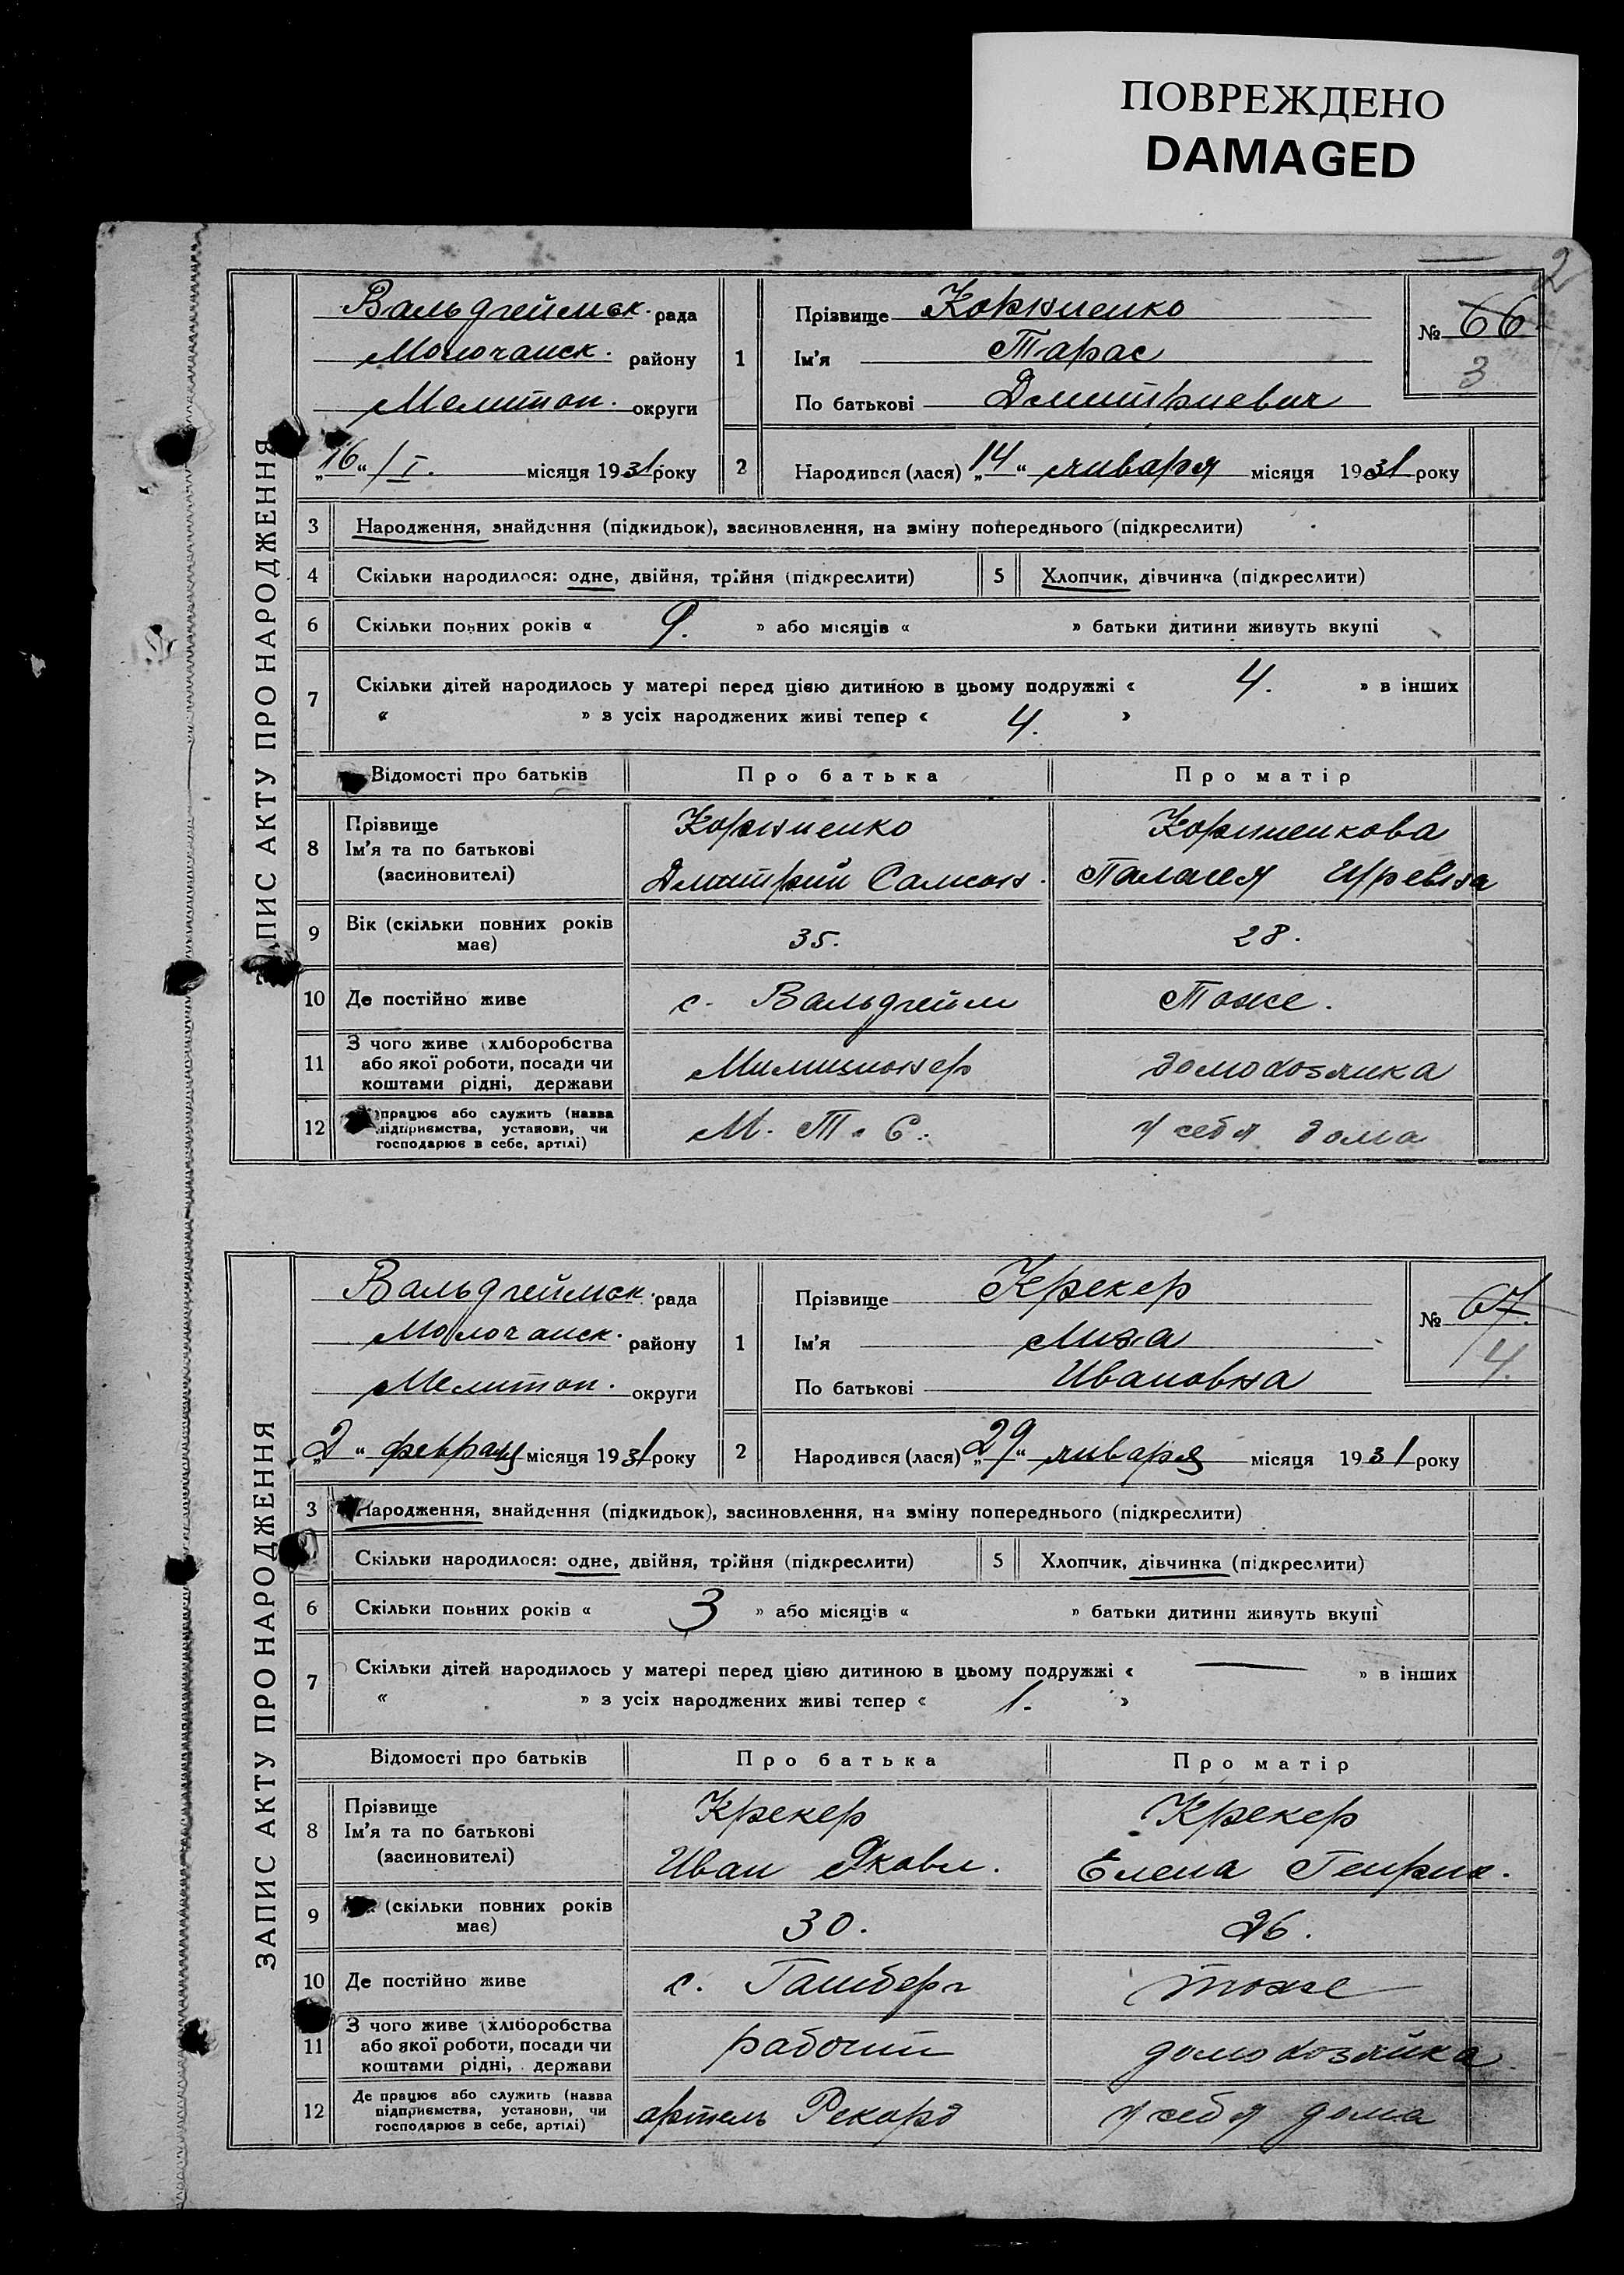 ПОВРЕЖДЕНО
DAMAGED
2
ПИС АКТУ ПРО НАРОДЖЕННЯ
Вальдгеймск. рада
Молочанск. району
Мелитоп. округи
„16“ /I. місяця 1931 року
1 Прізвище Коржиенко
Ім'я Тарас
По батькові Дмитриевич
№ 66
3
2 Народився (лася) „14“ января місяця 1931 року
3 Народження, знайдення (підкидьок), засиновлення, на зміну попереднього (підкреслити)
4 Скільки народилося: одне, двійня, трійня (підкреслити) 5 Хлопчик, дівчинка (підкреслити)
6 Скільки повних років « 9. » або місяців « » батьки дитини живуть вкупі
7 Скільки дітей народилось у матері перед цією дитиною в цьому подружжі « 4. » в інших
« » з усіх народжених живі тепер « 4. »
Відомості про батьків Про батька Про матір
8 Прізвище Коржиенко
Ім'я та по батькові
(засиновителі) Дмитрий Самсон.
9 Вік (скільки повних років має) 35. 28.
10 Де постійно живе с. Вальдгейм Тоже.
11 З чого живе (хліборобства або якої роботи, посади чи коштами рідні, держави Милиционер домохозяика
12 працює або служить (назва підприємства, установи, чи господарює в себе, артілі) М. Т. С. у себя дома
ЗАПИС АКТУ ПРО НАРОДЖЕННЯ
Вальдгеймск. рада
Молочанск. району
Мелитоп. округи
„2“ февраля місяця 1931 року
1 Прізвище Крекер
Ім'я Лиза
По батькові Ивановна
№ 67.
4.
2 Народився (лася) „29“ января місяця 1931 року
3 Народження, знайдення (підкидьок), засиновлення, на зміну попереднього (підкреслити)
Скільки народилося: одне, двійня, трійня (підкреслити) 5 Хлопчик, дівчинка (підкреслити)
6 Скільки повних років « 3 » або місяців « » батьки дитини живуть вкупі
7 Скільки дітей народилось у матері перед цією дитиною в цьому подружжі « — » в інших
« » з усіх народжених живі тепер « 1. »
Відомості про батьків Про батька Про матір
8 Прізвище Крекер Крекер
Ім'я та по батькові
(засиновителі) Иван Яковл. Елена Генрих.
9 (скільки повних років має) 30. 26.
10 Де постійно живе с. Гамберг тоже
11 З чого живе (хліборобства або якої роботи, посади чи коштами рідні, держави рабочий домохозяйка
12 Де працює або служить (назва підприємства, установи, чи господарює в себе, артілі) артель Рекорд у себя дома